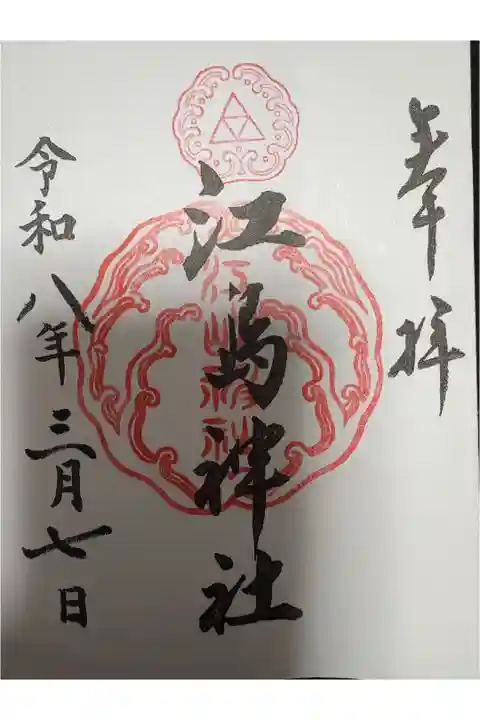 奉拝
江島神社
江島神社
令和八年三月七日